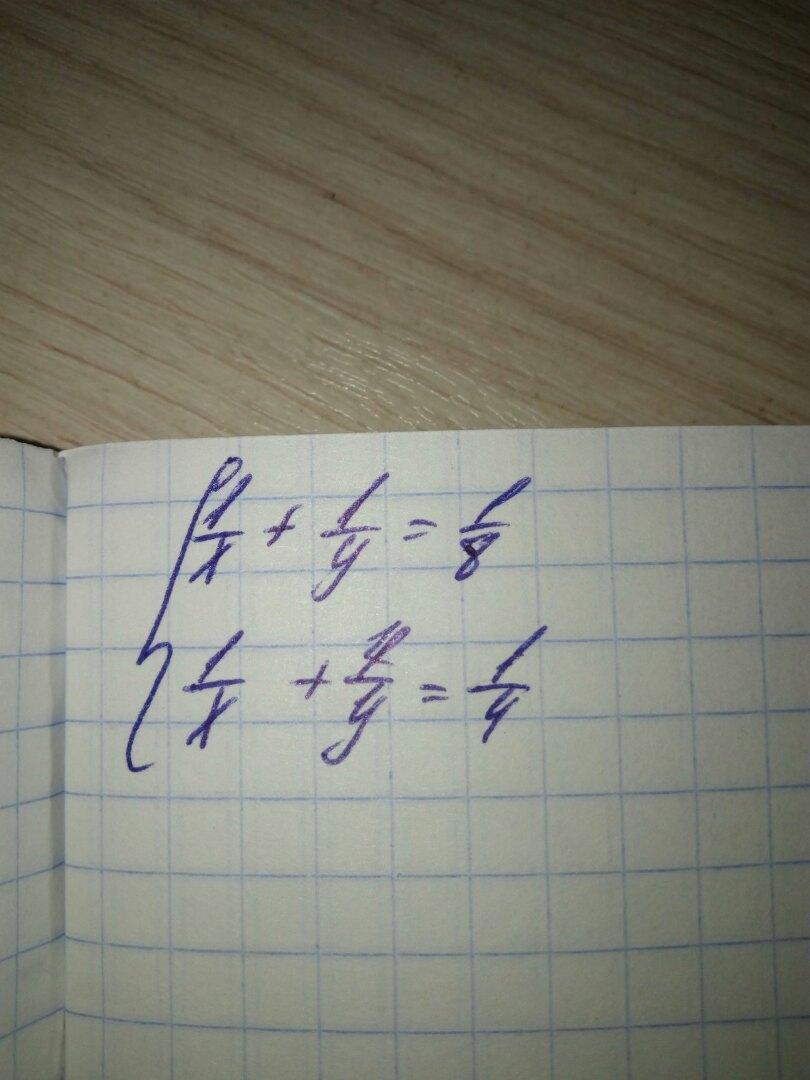 1/x + 1/y = 1/8
1/x + 4/y = 1/4